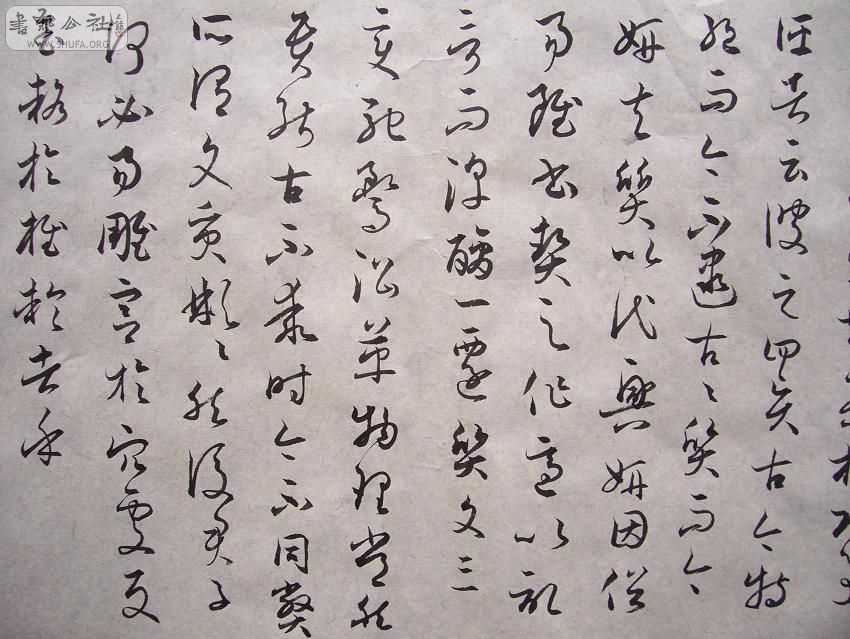 評者云彼之四賢古今特
絕而今不逮古〻質而今
妍夫質以代興妍因俗
易雖書契之作適以記
言而淳醨一遷質文三
變馳騖沿革物理常然
貴能古不乖時今不同弊
所謂文質彬〻然後君子
何必易雕宮於穴處反
玉輅於椎輪者乎
書法公社
WWW.SHUFA.ORG